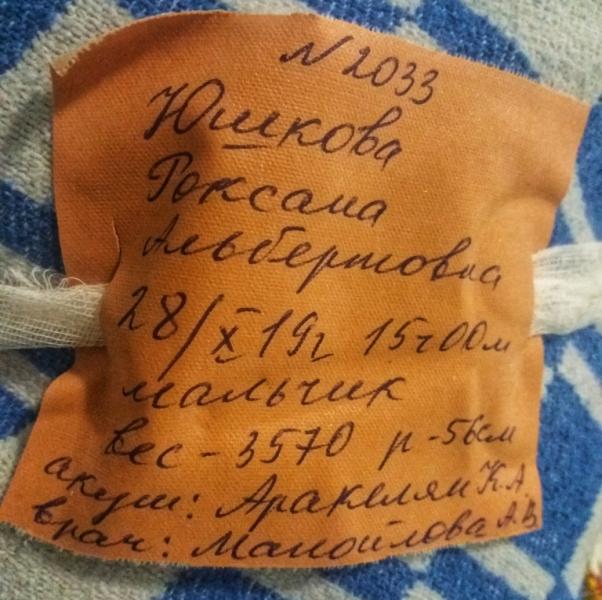 N 2033
Юшкова
Роксана
Альбертовна
28/X 19г 15ч00м
мальчик
вес - 3570 р - 56см
акуш: Аракелян К.А.
врач: Манойлова А.В.